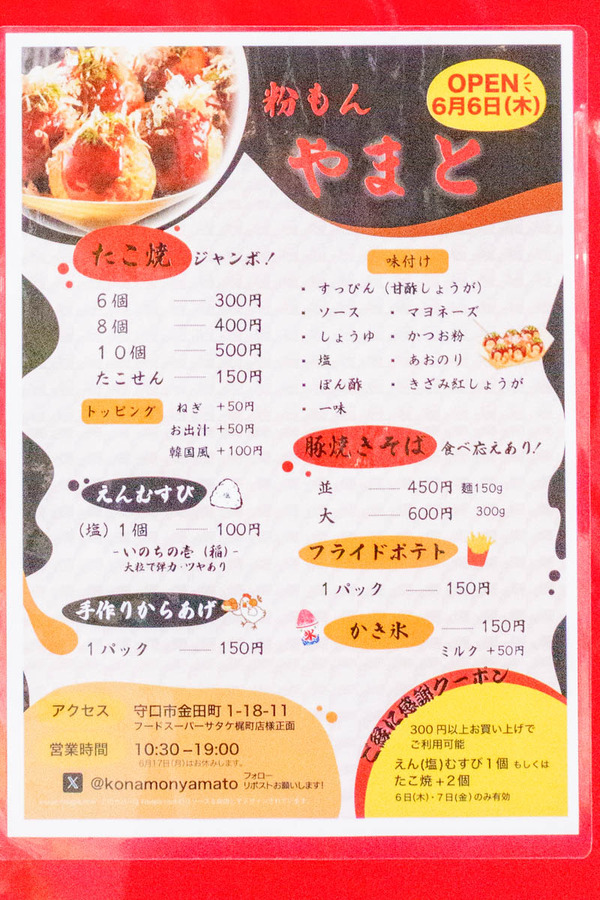 OPEN
6月6日(木)
粉もん
やまと
たこ焼 ジャンボ!
6個 300円
8個 400円
10個 500円
たこせん 150円
トッピング ねぎ +50円
お出汁 +50円
韓国風 +100円
えんむすび
(塩)1個 100円
-いのちの壱(稲)-
大粒で弾力・ツヤあり
手作りからあげ
1パック 150円
味付け
・すっぴん(甘酢しょうが)
・ソース ・マヨネーズ
・しょうゆ ・かつお粉
・塩 ・あおのり
・ぽん酢 ・きざみ紅しょうが
・一味
豚焼きそば 食べ応えあり!
並 450円 麺150g
大 600円 300g
フライドポテト
1パック 150円
氷
かき氷 150円
ミルク +50円
アクセス 守口市金田町 1-18-11
フードスーパーサタケ梶町店様正面
営業時間 10:30−19:00
6月17日(月)はお休みします。
X @konamonyamato フォロー
リポストお願いします!
ご縁に感謝クーポン
300円以上お買い上げで
ご利用可能
えん(塩)むすび1個 もしくは
たこ焼+2個
6日(木)・7日(金)のみ有効